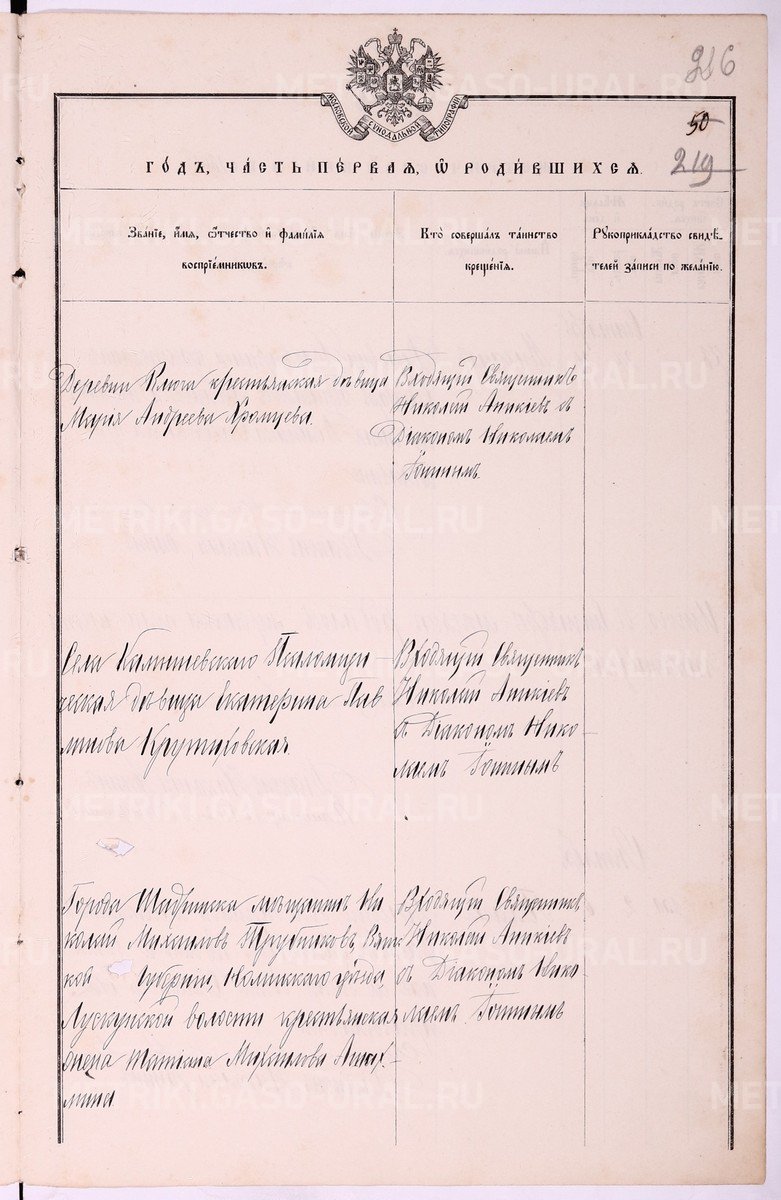 286
50
219
МОСКОВСКОЙ СѴНОДАЛЬНОЙ ТИПОГРАФІИ
ГО́ДЪ, ЧА́СТЬ ПЕ́РВАЯ, Ѽ РОДИ́ВШИХСЯ.
Зва́ніе, и҆́мя, ѻ҆́тчество и҆ фами́лія
воспріе́мникѡвъ.
Кто̀ соверша́лъ та́инство
креще́нія.
Рꙋкоприкла́дство свидѣ́-
телей за́писи по жела́нію.
Деревни крестьянская дѣвица
Марія Андреева Храмцева.
Входящій Священникъ
Николай Аникіевъ съ
Діакономъ Николаемъ
Села Камышевскаго Псаломщи-
ческая дѣвица Екатерина Пав-
линова Крутиховская.
Входящій Священникъ
Николай Аникіевъ
съ Діакономъ Нико-
лаемъ
Города Шадринска мѣщанинъ Ни
колай Михаиловъ Трубниковъ, Вятс
кой Губерніи, Нолинскаго уѣзда,
волости крестьянская
жена Татіана Михаилова
Входящій Священникъ
Николай Аникіевъ
съ Діакономъ Нико
лаемъ
METRIKI.GASO-URAL.RU